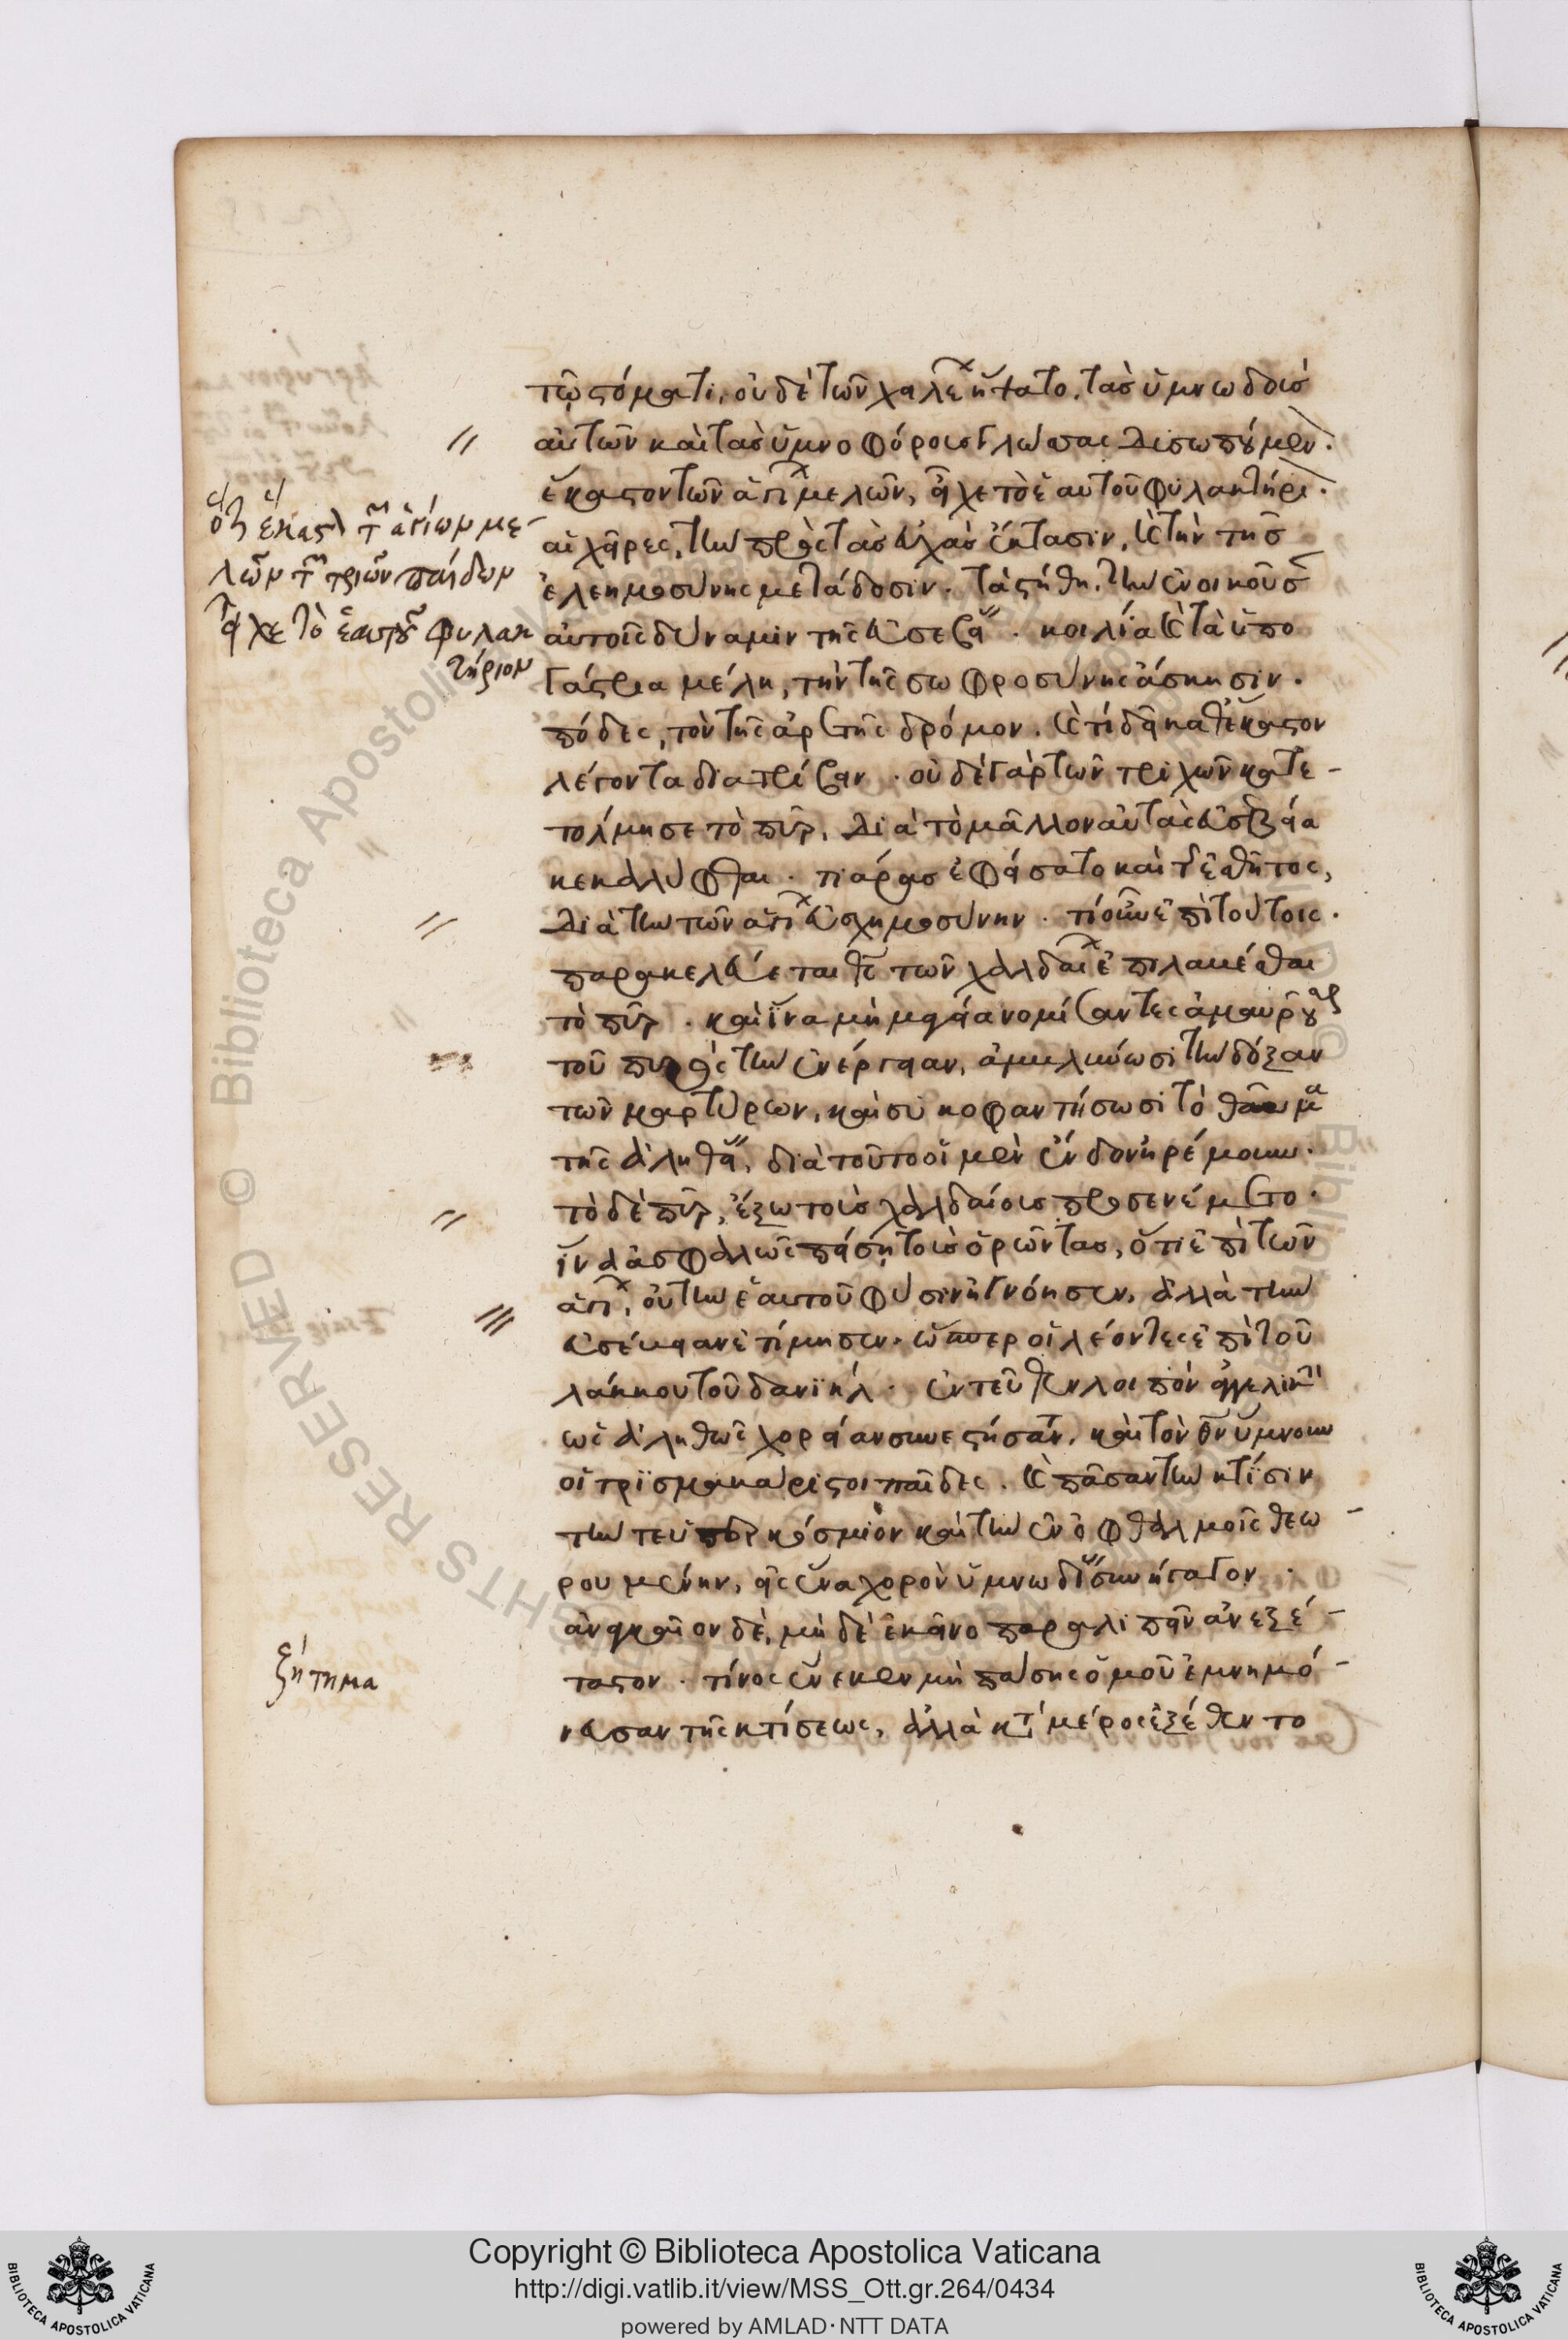 τῷ στόματι, οὐδὲ τῶν χειλέων ἥψατο, τὰς ὑμνωδοὺς
αὐτῶν καὶ τὰς ὑμνοφόρους γλώττας δυσωπούμεν.
ἕκαστον τῶν ἁγίων μελῶν, εἶχε τὸ ἑαυτοῦ φυλακτήρι.
αἱ χεῖρες, τὴν πρὸς τὰς εὐχὰς ἔκτασιν, καὶ τὴν τῆς
ἐλεημοσύνης μετάδοσιν. τὰ στήθη, τὴν ἐνοικοῦσ
αὐτοῖς δύναμιν τῆς εὐσεβείας. κοιλία καὶ τὰ ὑπο
γάστρια μέλη, τὴν τῆς σωφροσύνης ἄσκησιν.
πόδες, τὸν τῆς ἀρετῆς δρόμον. καὶ τί δεῖ καθ' ἕκαστον
λέγοντα διατρίβειν. οὐδὲ γὰρ τῶν τριχῶν κατε-
τόλμησε τὸ πῦρ, διὰ τὸ μᾶλλον αὐτὰς εὐσεβεία
κεκαλύφθαι. τιάρας ἐφείσατο καὶ τῆς ἐσθῆτος,
διὰ τὴν τῶν ἁγίων εὐσχημοσύνην. τί οὖν ἐπὶ τούτοις.
παρακελεύεται θεὸς τῶν χαλδαίων ἐπιλαμέσθαι
τὸ πῦρ. καὶ ἵνα μὴ μαγείαν ὀνομίσαντες ἀμαυροῦσαν
τοῦ πυρὸς τὴν ἐνέργειαν, ἀμβλύνωσι τὴν δόξαν
τῶν μαρτύρων, καὶ συκοφαντήσωσι τὸ θαῦμα
τῆς ἀληθείας, διὰ τοῦτο οἱ μὲν ἔνδον ἠρέμουν.
τὸ δὲ πῦρ, ἔξω τοῖς χαλδαίοις προσενέμετο.
ἵν' ἀσφαλῶς πείσῃ τοὺς ὁρῶντας, ὅτι ἐπὶ τῶν
ἁγίων, οὐ τὴν ἑαυτοῦ φύσιν ἠγνόησεν, ἀλλὰ τὴν
εὐσέβειαν ἐτίμησεν. ὥσπερ οἱ λέοντες ἐπὶ τοῦ
λάκκου τοῦ δανιήλ. ἐντεῦθεν λοιπὸν ἀγγελικὴν
ὡς ἀληθῶς χορείαν συνεστήσαντο, καὶ τὸν θεὸν ὕμνουν
οἱ τρισμακάριστοι παῖδες. καὶ πᾶσαν τὴν κτίσιν
τήν τε ὑπερκόσμιον καὶ τὴν ἐν ὀφθαλμοῖς θεω-
ρουμένην, εἰς ἕνα χορὸν ὑμνωδίας συνήγαγον.
ἀναγκαῖον δὲ, μὴ δὲ ἐκεῖνο παραλιπεῖν ἀνεξέ-
ταστον. τίνος ἕνεκεν μὴ πάσης ὁμοῦ ἐμνημό-
νευσαν τῆς κτίσεως, ἀλλὰ κατὰ μέρος ἐξέθεντο
ὅτι ἕκαστον τῶν ἁγίων με-
λῶν τῶν τριῶν παίδων
εἶχε τὸ ἑαυτοῦ φυλακ
τήριον
ζήτημα
Copyright © Biblioteca Apostolica Vaticana
http://digi.vatlib.it/view/MSS_Ott.gr.264/0434
powered by AMLAD·NTT DATA
BIBLIOTECA APOSTOLICA VATICANA
BIBLIOTECA APOSTOLICA VATICANA